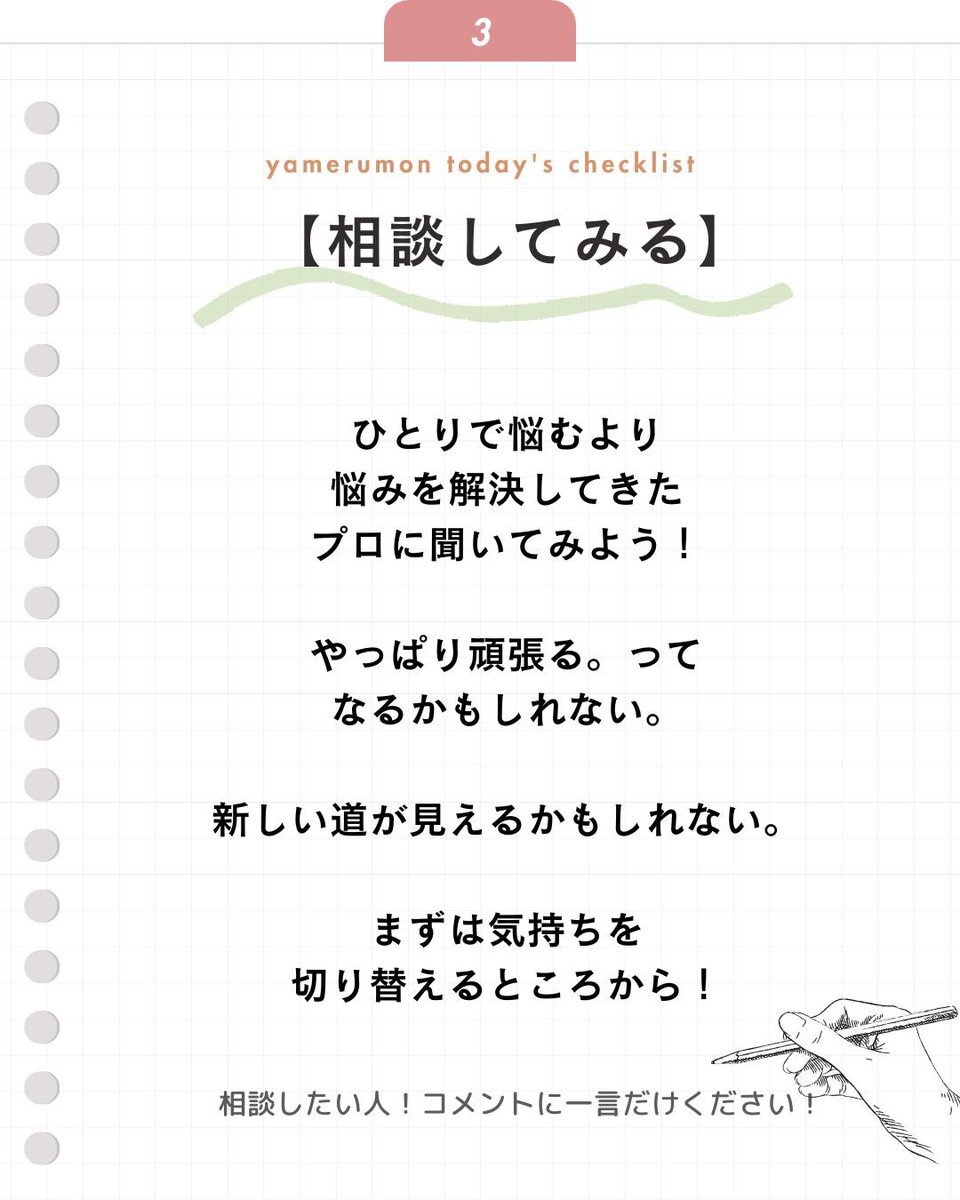 3
yamerumon today's checklist
【相談してみる】
ひとりで悩むより
悩みを解決してきた
プロに聞いてみよう！
やっぱり頑張る。って
なるかもしれない。
新しい道が見えるかもしれない。
まずは気持ちを
切り替えるところから！
相談したい人！コメントに一言だけください！